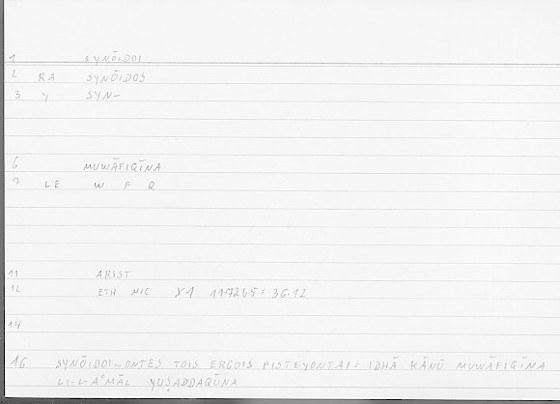 1 SYNŌIDOI
2 RA SYNŌIDOS
3 Y SYN-
6 MUWĀFIQĪNA
7 LE W F Q
11 ARIST
12 ETH NIC 1172b5 = 36.12
14
16 SYNŌIDOI - ONTES TOIS ERGOIS PISTEYONTAI = IDHĀ KĀNŪ MUWĀFIQĪNA
LI-L-AʿMĀL YUṢADDAQŪNA